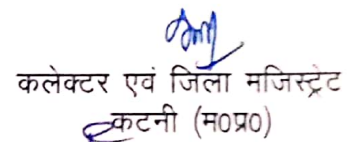 कलेक्टर एवं जिला मजिस्ट्रेट
कटनी (म०प्र०)